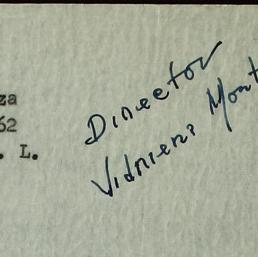 za
62
. L.
Director
Vidrieri Mont